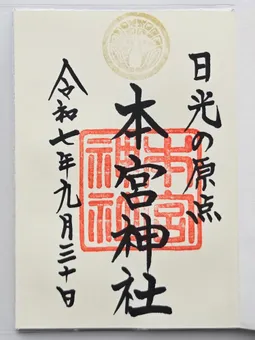 日光の原点
本宮神社
令和七年九月三十日
本宮
神社